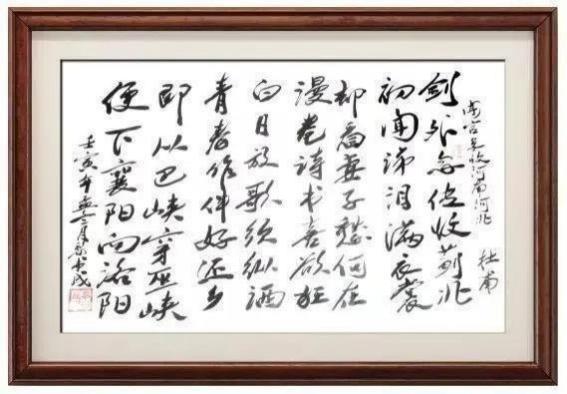 闻官军收河南河北 杜甫
剑外忽传收蓟北
初闻涕泪满衣裳
却看妻子愁何在
漫卷诗书喜欲狂
白日放歌须纵酒
青春作伴好还乡
即从巴峡穿巫峡
便下襄阳向洛阳
壬寅年 三月 书